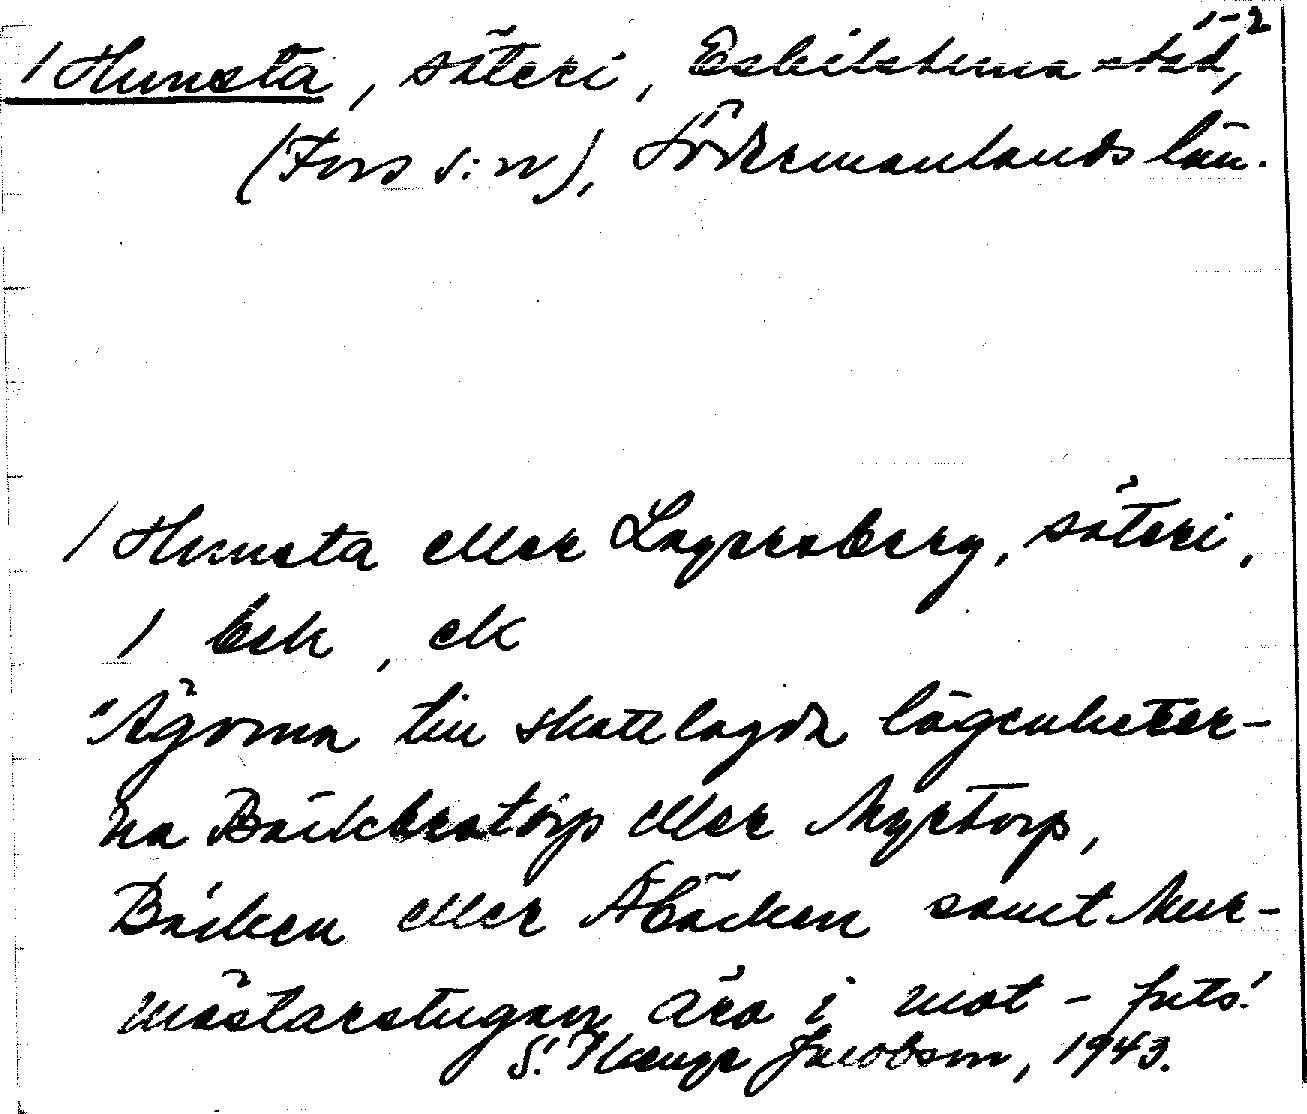 1-2
/ Hunsta, säteri, Eskilstuna stad,
(Fors s:n), Södermanlands län.
/ Hunsta eller Lagersberg, säteri,
1 Esk, ek
"Ägorna till skattlagda lägenheter-
na Bäckbrotorp eller Myrtorp,
Bäcken eller Åbäcken samt Mur-
mästarstugan ära i mot - forts!
S. Jacobson, 1943.